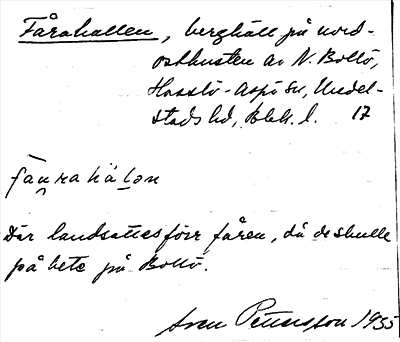 Fårahallen, berghäll på nord-
ostkusten av N. Boltö,
Hasslö-Aspö sn, Medel-
stads hd, Blek. l. 17
fa̯uraháḷən
Där landsattes förr fåren, då de skulle
på bete på Boltö.
Sven Petersson 1935